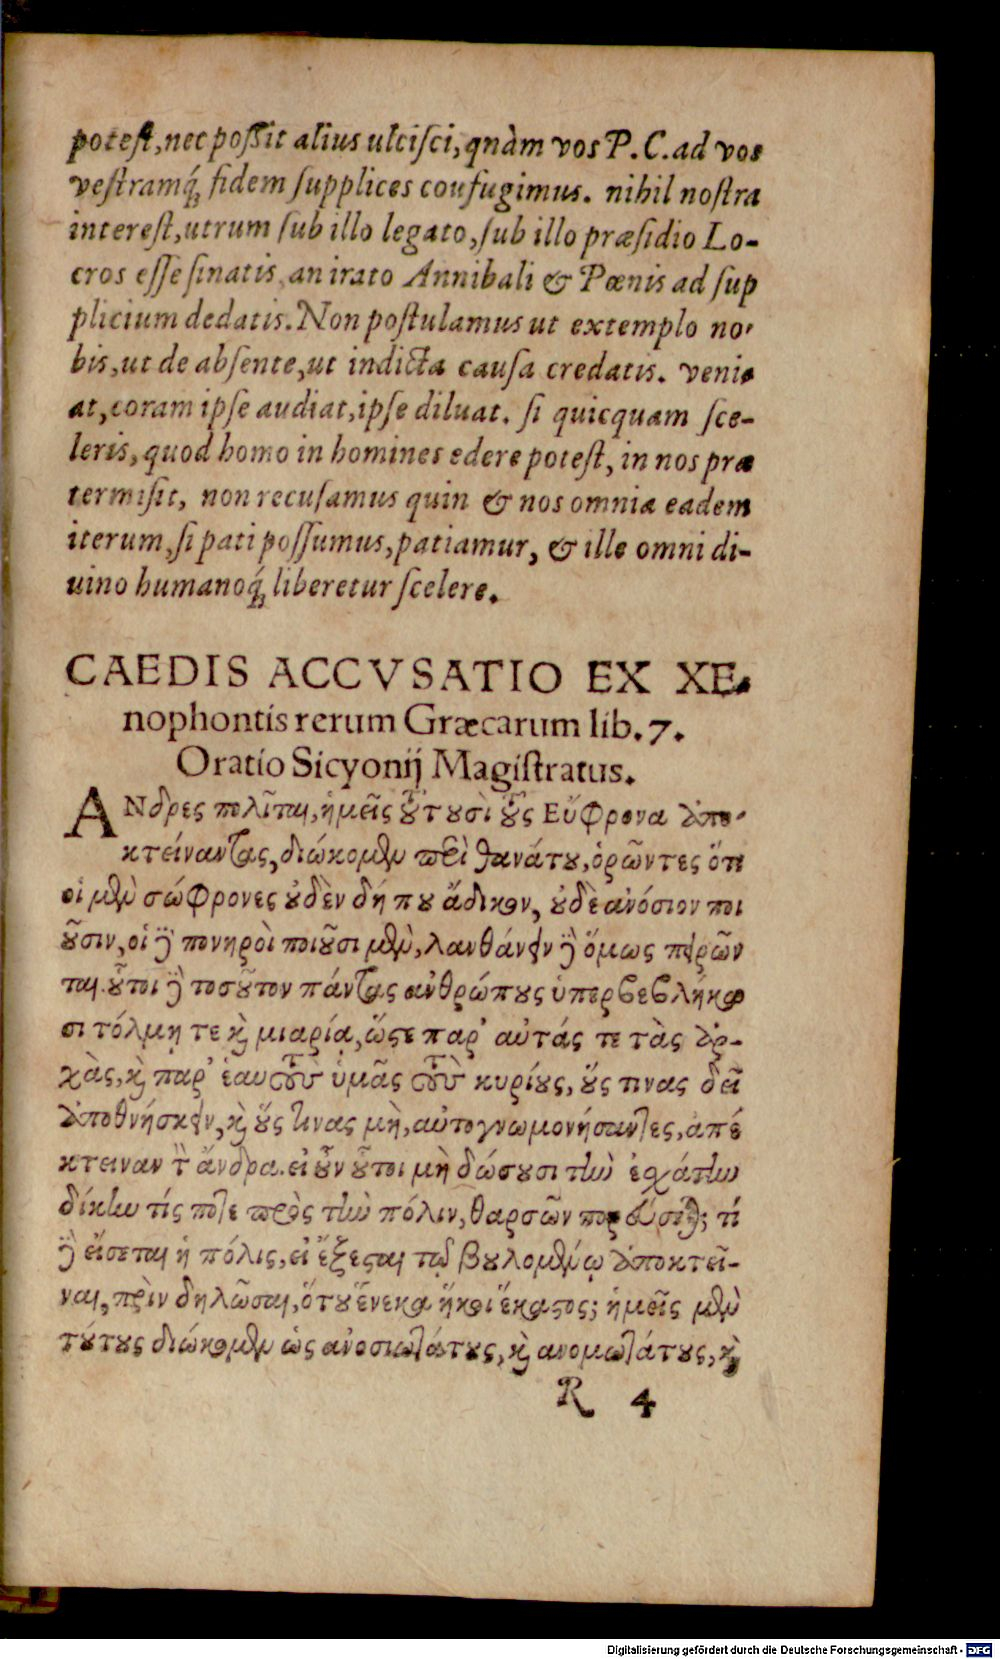 potest, nec possit alius ulcisci, qnàm vos P. C. ad vos
vestramq́; fidem supplices confugimus. nihil nostra
interest, utrum sub illo legato, sub illo præsidio Lo-
cros esse sinatis, an irato Annibali & Pœnis ad sup
plicium dedatis. Non postulamus ut extemplo no-
bis, ut de absente, ut indicta causa credatis. veni-
at, coram ipse audiat, ipse diluat. si quicquam sce-
leris, quod homo in homines edere potest, in nos præ
termisit, non recusamus quin & nos omnia eadem
iterum, si pati possumus, patiamur, & ille omni di-
uino humanoq́; liberetur scelere.
CAEDIS ACCVSATIO EX XE-
nophontis rerum Græcarum lib. 7.
Oratio Sicyonij Magistratus.
ΑΝδρες πολῖται, ἡμεῖς τουτουσὶ τοὺς Εὔφρονα ἀπο-
κτείναντας, διώκομεν περὶ θανάτου, ὁρῶντες ὅτι
οἱ μὲν σώφρονες οὐδὲν δή που ἄδικον, οὐδὲ ἀνόσιον ποι
οῦσιν, οἱ δὲ πονηροὶ ποιοῦσι μὲν, λανθάνειν δὲ ὅμως πειρῶν
ται. οὗτοι δὲ τοσοῦτον πάντας ανθρώπους ὑπερβεβλήκα
σι τόλμῃ τε καὶ μιαρίᾳ, ὥστε παρ' αὐτάς τε τὰς ἀρ-
χὰς, καὶ παρ' ἑαυτοὺς ὑμᾶς τοὺς κυρίους, οὕς τινας δεῖ
ἀποθνήσκειν, καὶ οὕς τινας μὴ, αὐτογνωμονήσαντες, απέ
κτειναν τὸν ἄνδρα. εἰ οὖν οὗτοι μὴ δώσουσι τὴν ἐσχάτην
δίκην τίς ποτε πρὸς τὴν πόλιν, θαρσῶν πορεύσεται; τί
δὲ εἴσεται ἡ πόλις, εἰ ἔξεσται τῷ βουλομένῳ ἀποκτεῖ-
ναι, πρὶν δηλῶσαι, ὅτου ἕνεκα ἥκοι ἕκαστος; ἡμεῖς μὲν
τούτους διώκομεν ὡς ανοσιωτάτους, καὶ ανομωτάτους, καὶ
R 4
Digitalisierung gefördert durch die Deutsche Forschungsgemeinschaft - DFG